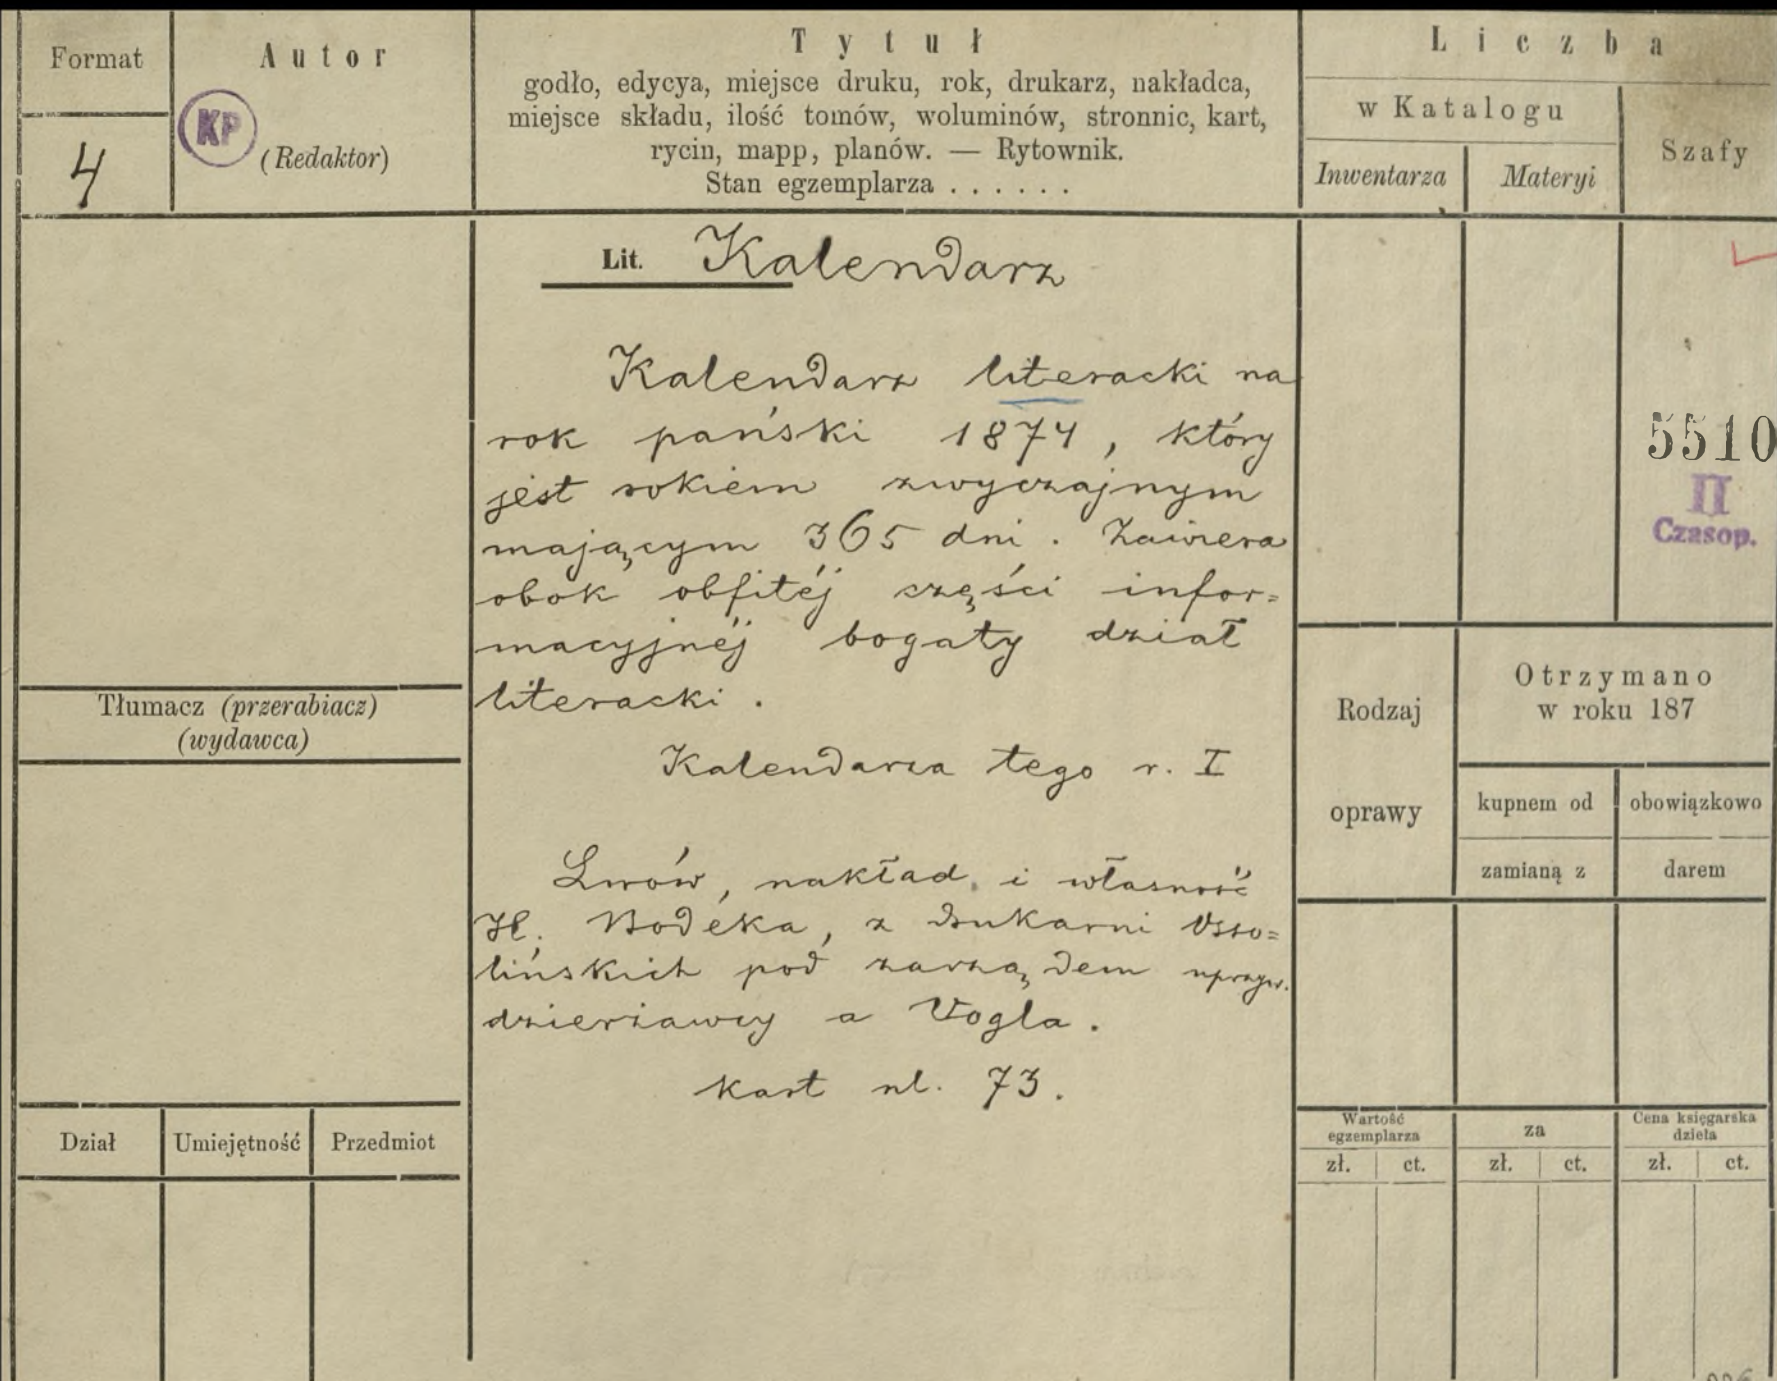 Format
4
Autor
KP
(Redaktor)
Tytuł
godło, edycya, miejsce druku, rok, drukarz, nakładca,
miejsce składu, ilość tomów, woluminów, stronnic, kart,
rycin, mapp, planów. — Rytownik.
Stan egzemplarza . . . . . .
Liczba
w Katalogu
Inwentarza
Materyi
Szafy
Lit. Kalendarz
Kalendarz literacki na
rok pański 1874, który
jest rokiem zwyczajnym
mającym 365 dni. Zawiera
obok obfitéj części infor=
macyjnéj bogaty dział
literacki.
Kalendarza tego r. I
Lwów, nakład i własność
H. Bodeka, z drukarni Osso=
lińskich pod zarządem uprzyw.
dzierżawcy a Vogla.
kart nl. 73.
5510
II
Czasop.
Tłumacz (przerabiacz)
(wydawca)
Rodzaj
oprawy
Otrzymano
w roku 187
kupnem od
obowiązkowo
zamianą z
darem
Dział
Umiejętność
Przedmiot
Wartość
egzemplarza
za
Cena księgarska
dzieła
zł. ct.
zł. ct.
zł. ct.